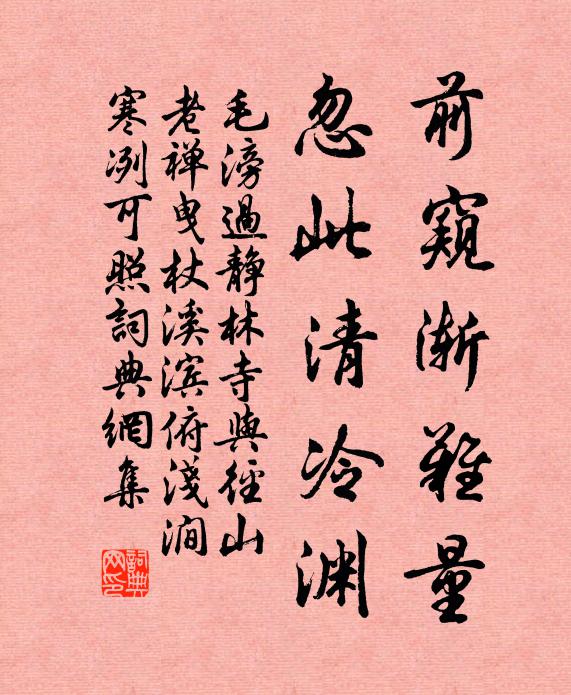 前窺渐難量
忽此清冷渊
毛滂過靜林寺與徑山
老禅曳杖溪滨俯淺澗
寒冽可照詞典網集
詞典网印